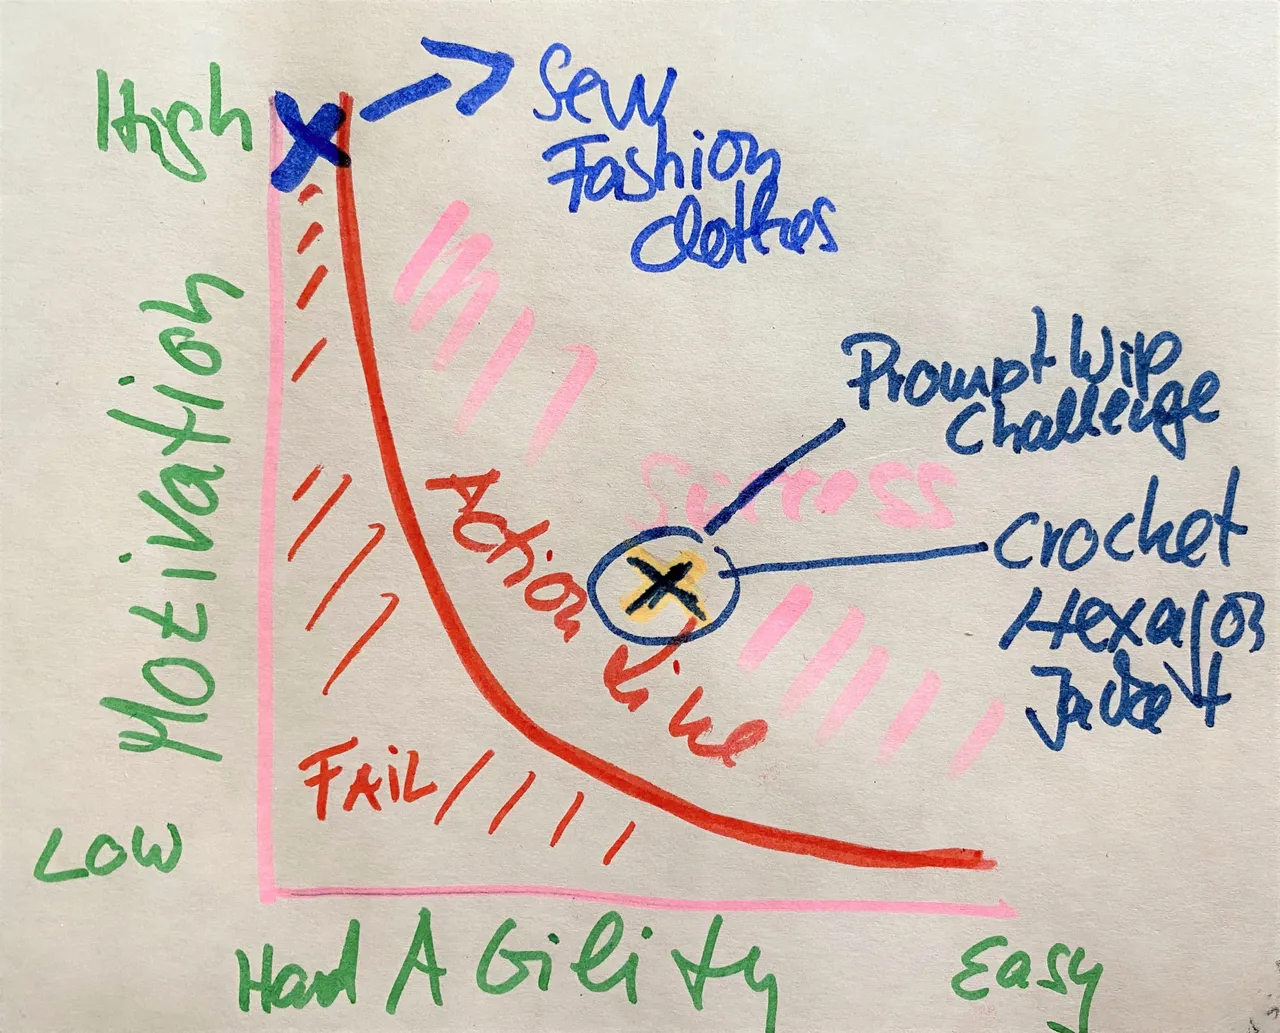 High
Sew
Fashion
Clothes
Motivation
Prompt Wip
Challenge
Success
Action Line
Crochet
Hexagon
Jacket
FAIL
Low
Hard Ability Easy